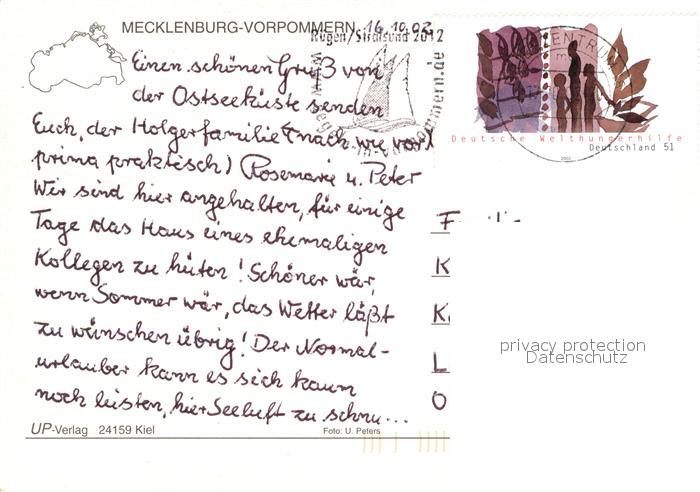 MECKLENBURG-VORPOMMERN 16.10.02
Rügen/Stralsund 2012
Einen schönen Gruß von
der Ostseeküste senden
Euch, der Holgerfamilie (nach wie vor
prima praktisch) Rosemarie u. Peter
Wir sind hier angehalten, für einige
Tage das Haus eines ehemaligen
Kollegen zu hüten! Schöner wär,
wenn Sommer wär, das Wetter läßt
zu wünschen übrig! Der Normal-
urlauber kann es sich kaum
noch leisten, hier Seeluft zu schnu...
UP-Verlag 24159 Kiel
Foto: U. Peters
Deutsche Welthungerhilfe
Deutschland 51
2002
F
K
K
L
O
privacy protection
Datenschutz